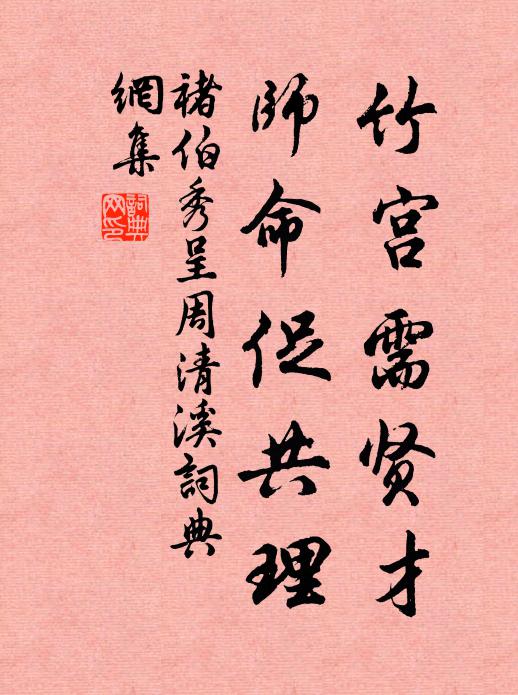 竹宫需贤才
師命促共理
褚伯秀呈周清溪詞典
網集
詞典网印